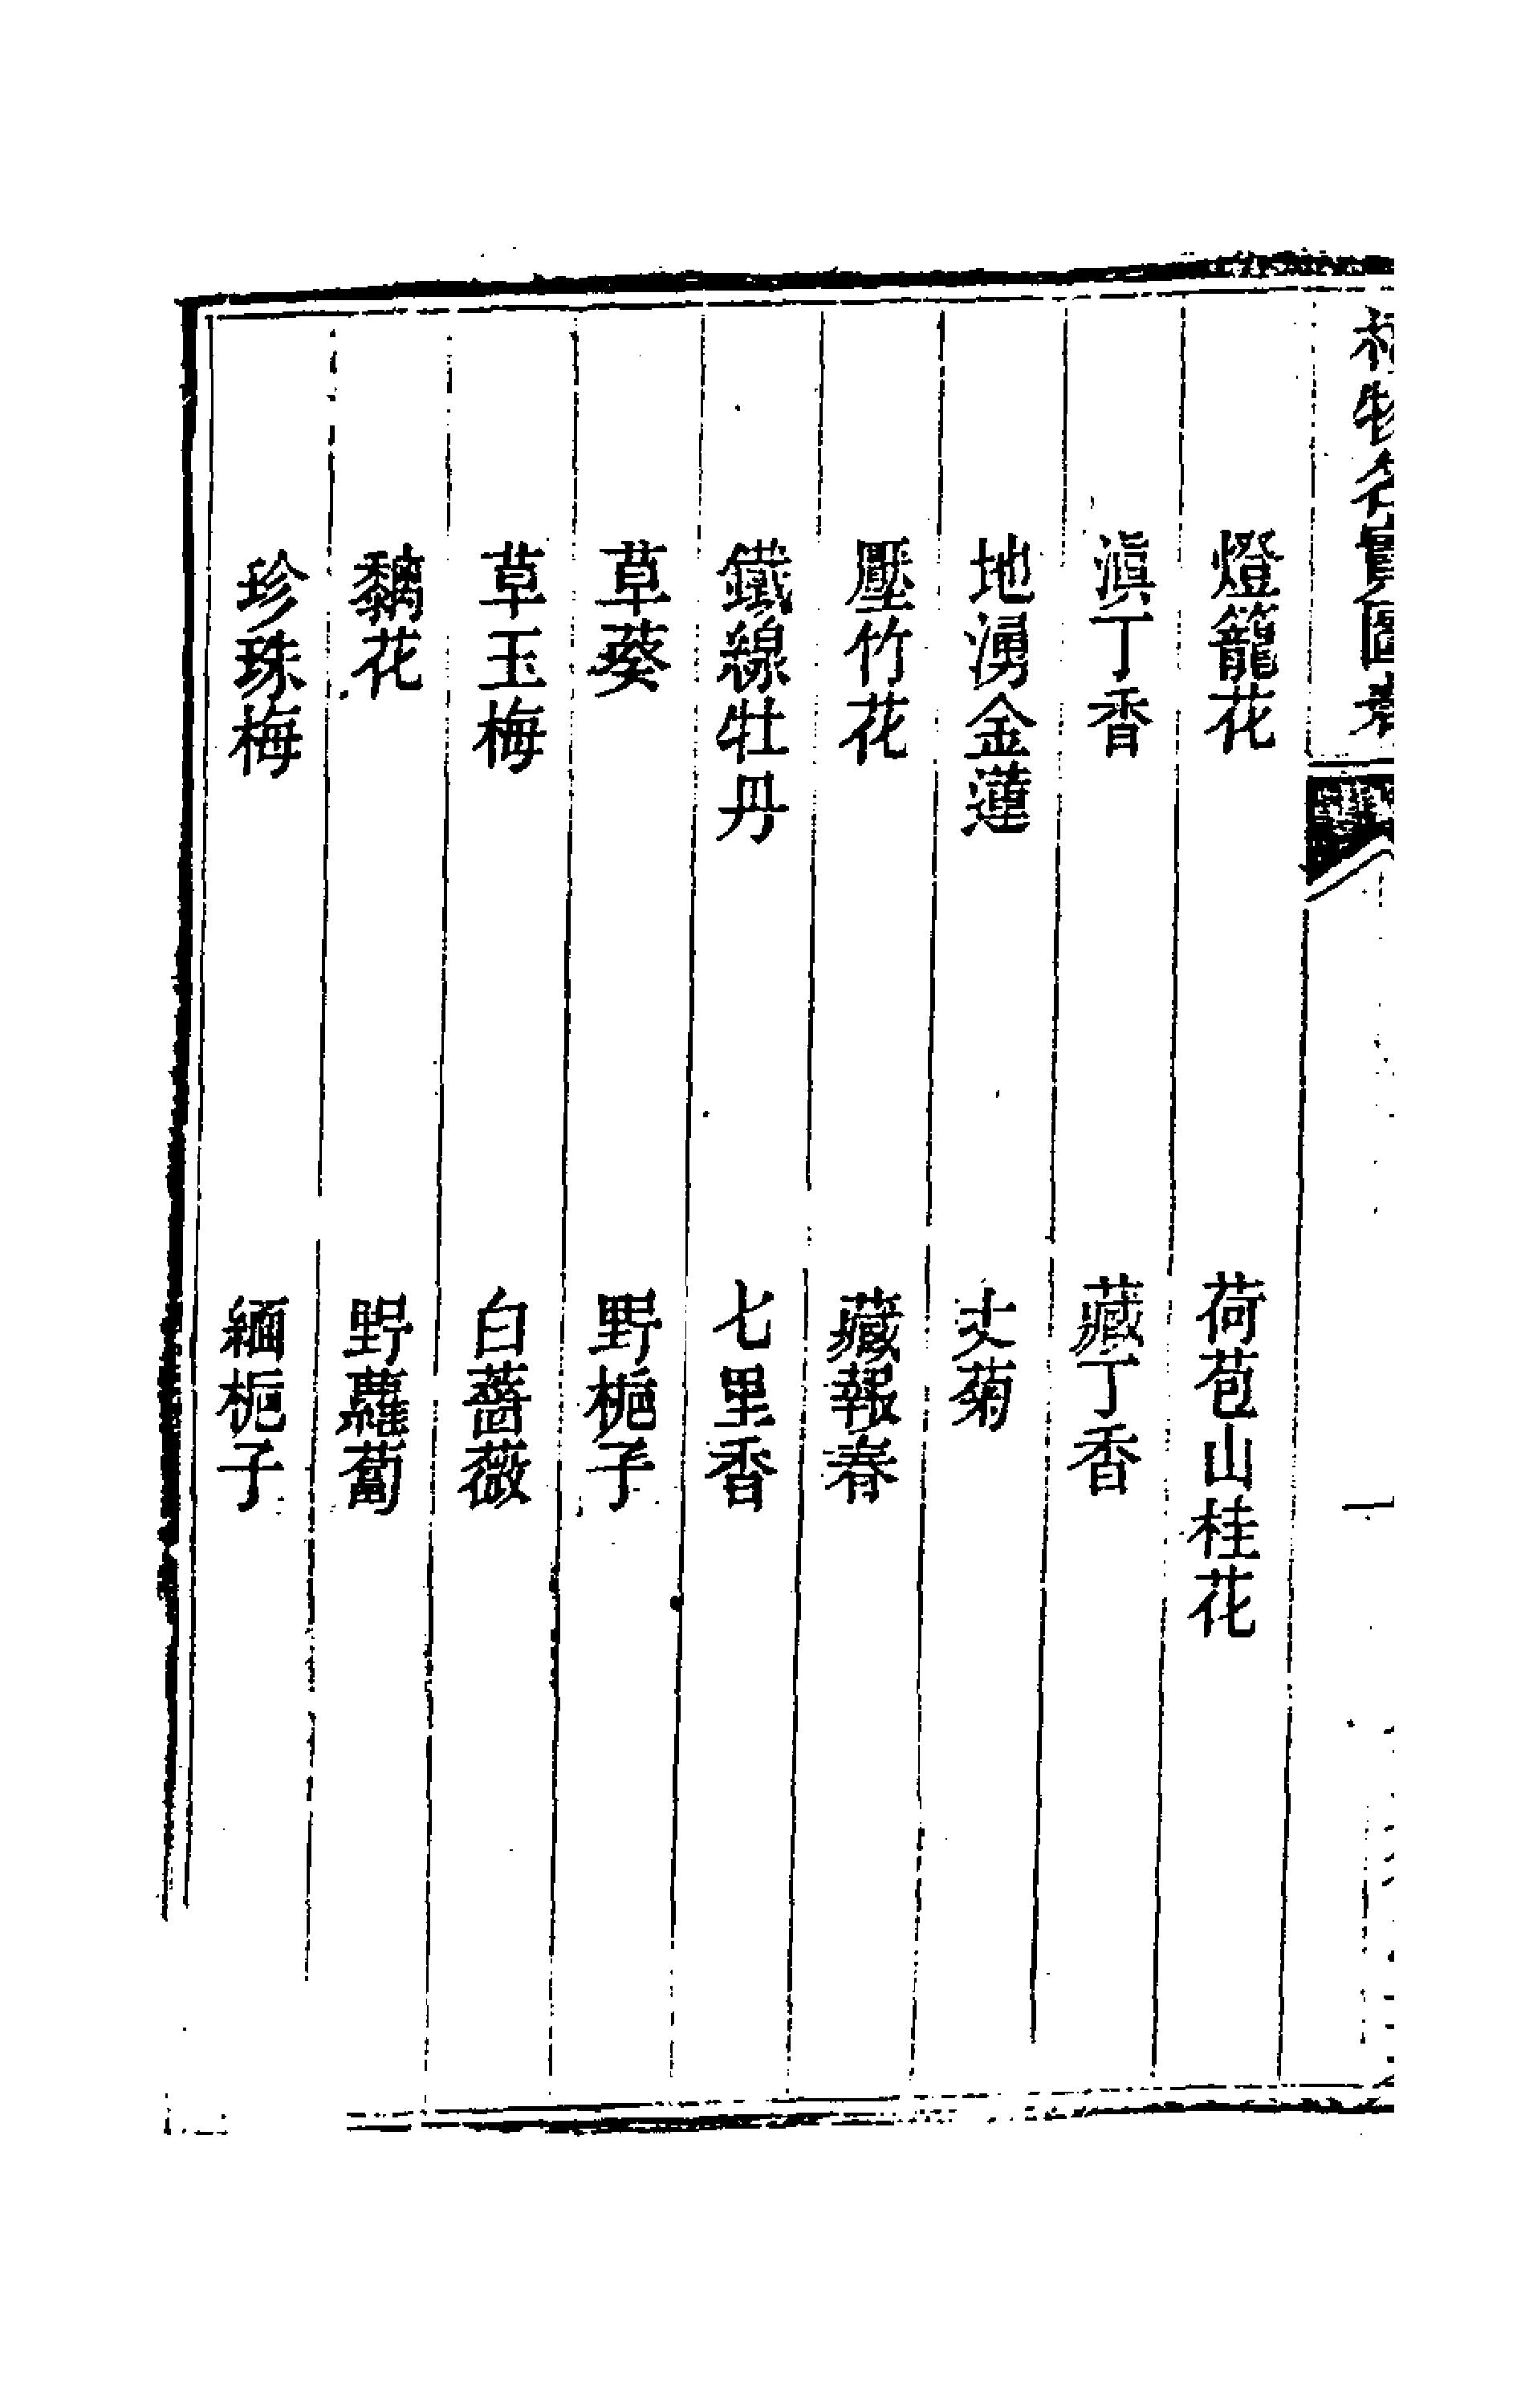 植物名實圖考
一
燈籠花　荷苞山桂花
滇丁香　藏丁香
地湧金蓮　丈菊
壓竹花　藏報春
鐵線牡丹　七里香
草葵　野梔子
草玉梅　白薔薇
黐花　野蘿蔔
珍珠梅　緬栀子